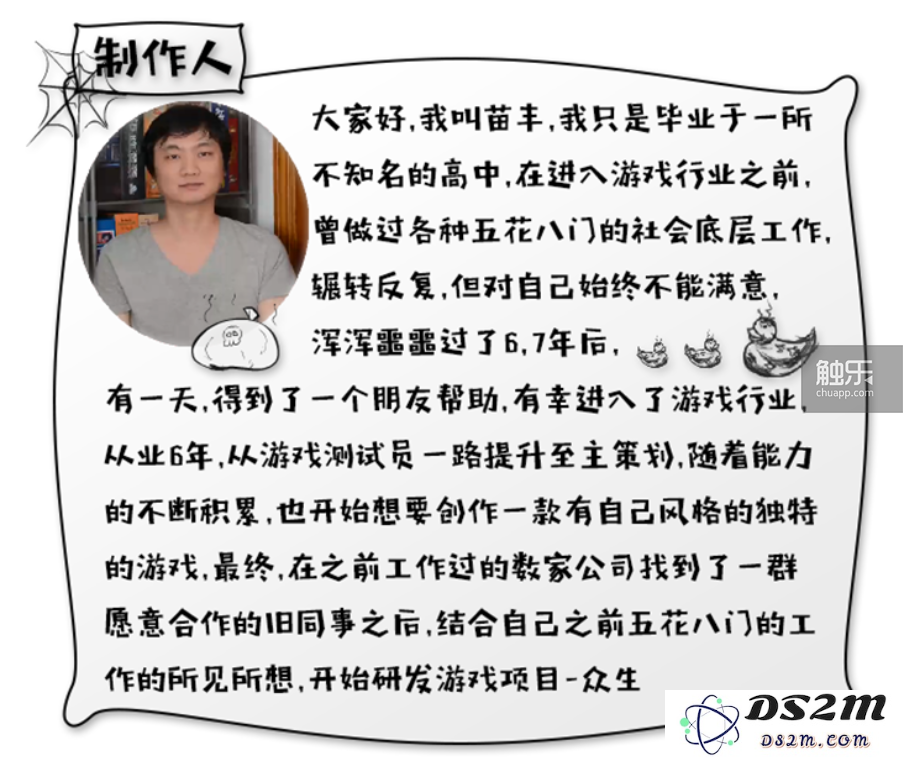 制作人
大家好,我叫苗丰,我只是毕业于一所
不知名的高中,在进入游戏行业之前,
曾做过各种五花八门的社会底层工作,
辗转反复,但对自己始终不能满意,
浑浑噩噩过了6,7年后,
有一天,得到了一个朋友帮助,有幸进入了游戏行业,
从业6年,从游戏测试员一路提升至主策划,随着能力
的不断积累,也开始想要创作一款有自己风格的独特
的游戏,最终,在之前工作过的数家公司找到了一群
愿意合作的旧同事之后,结合自己之前五花八门的工
作的所见所想,开始研发游戏项目-众生
触乐
chuapp.com
DS2M
DS2M.COM